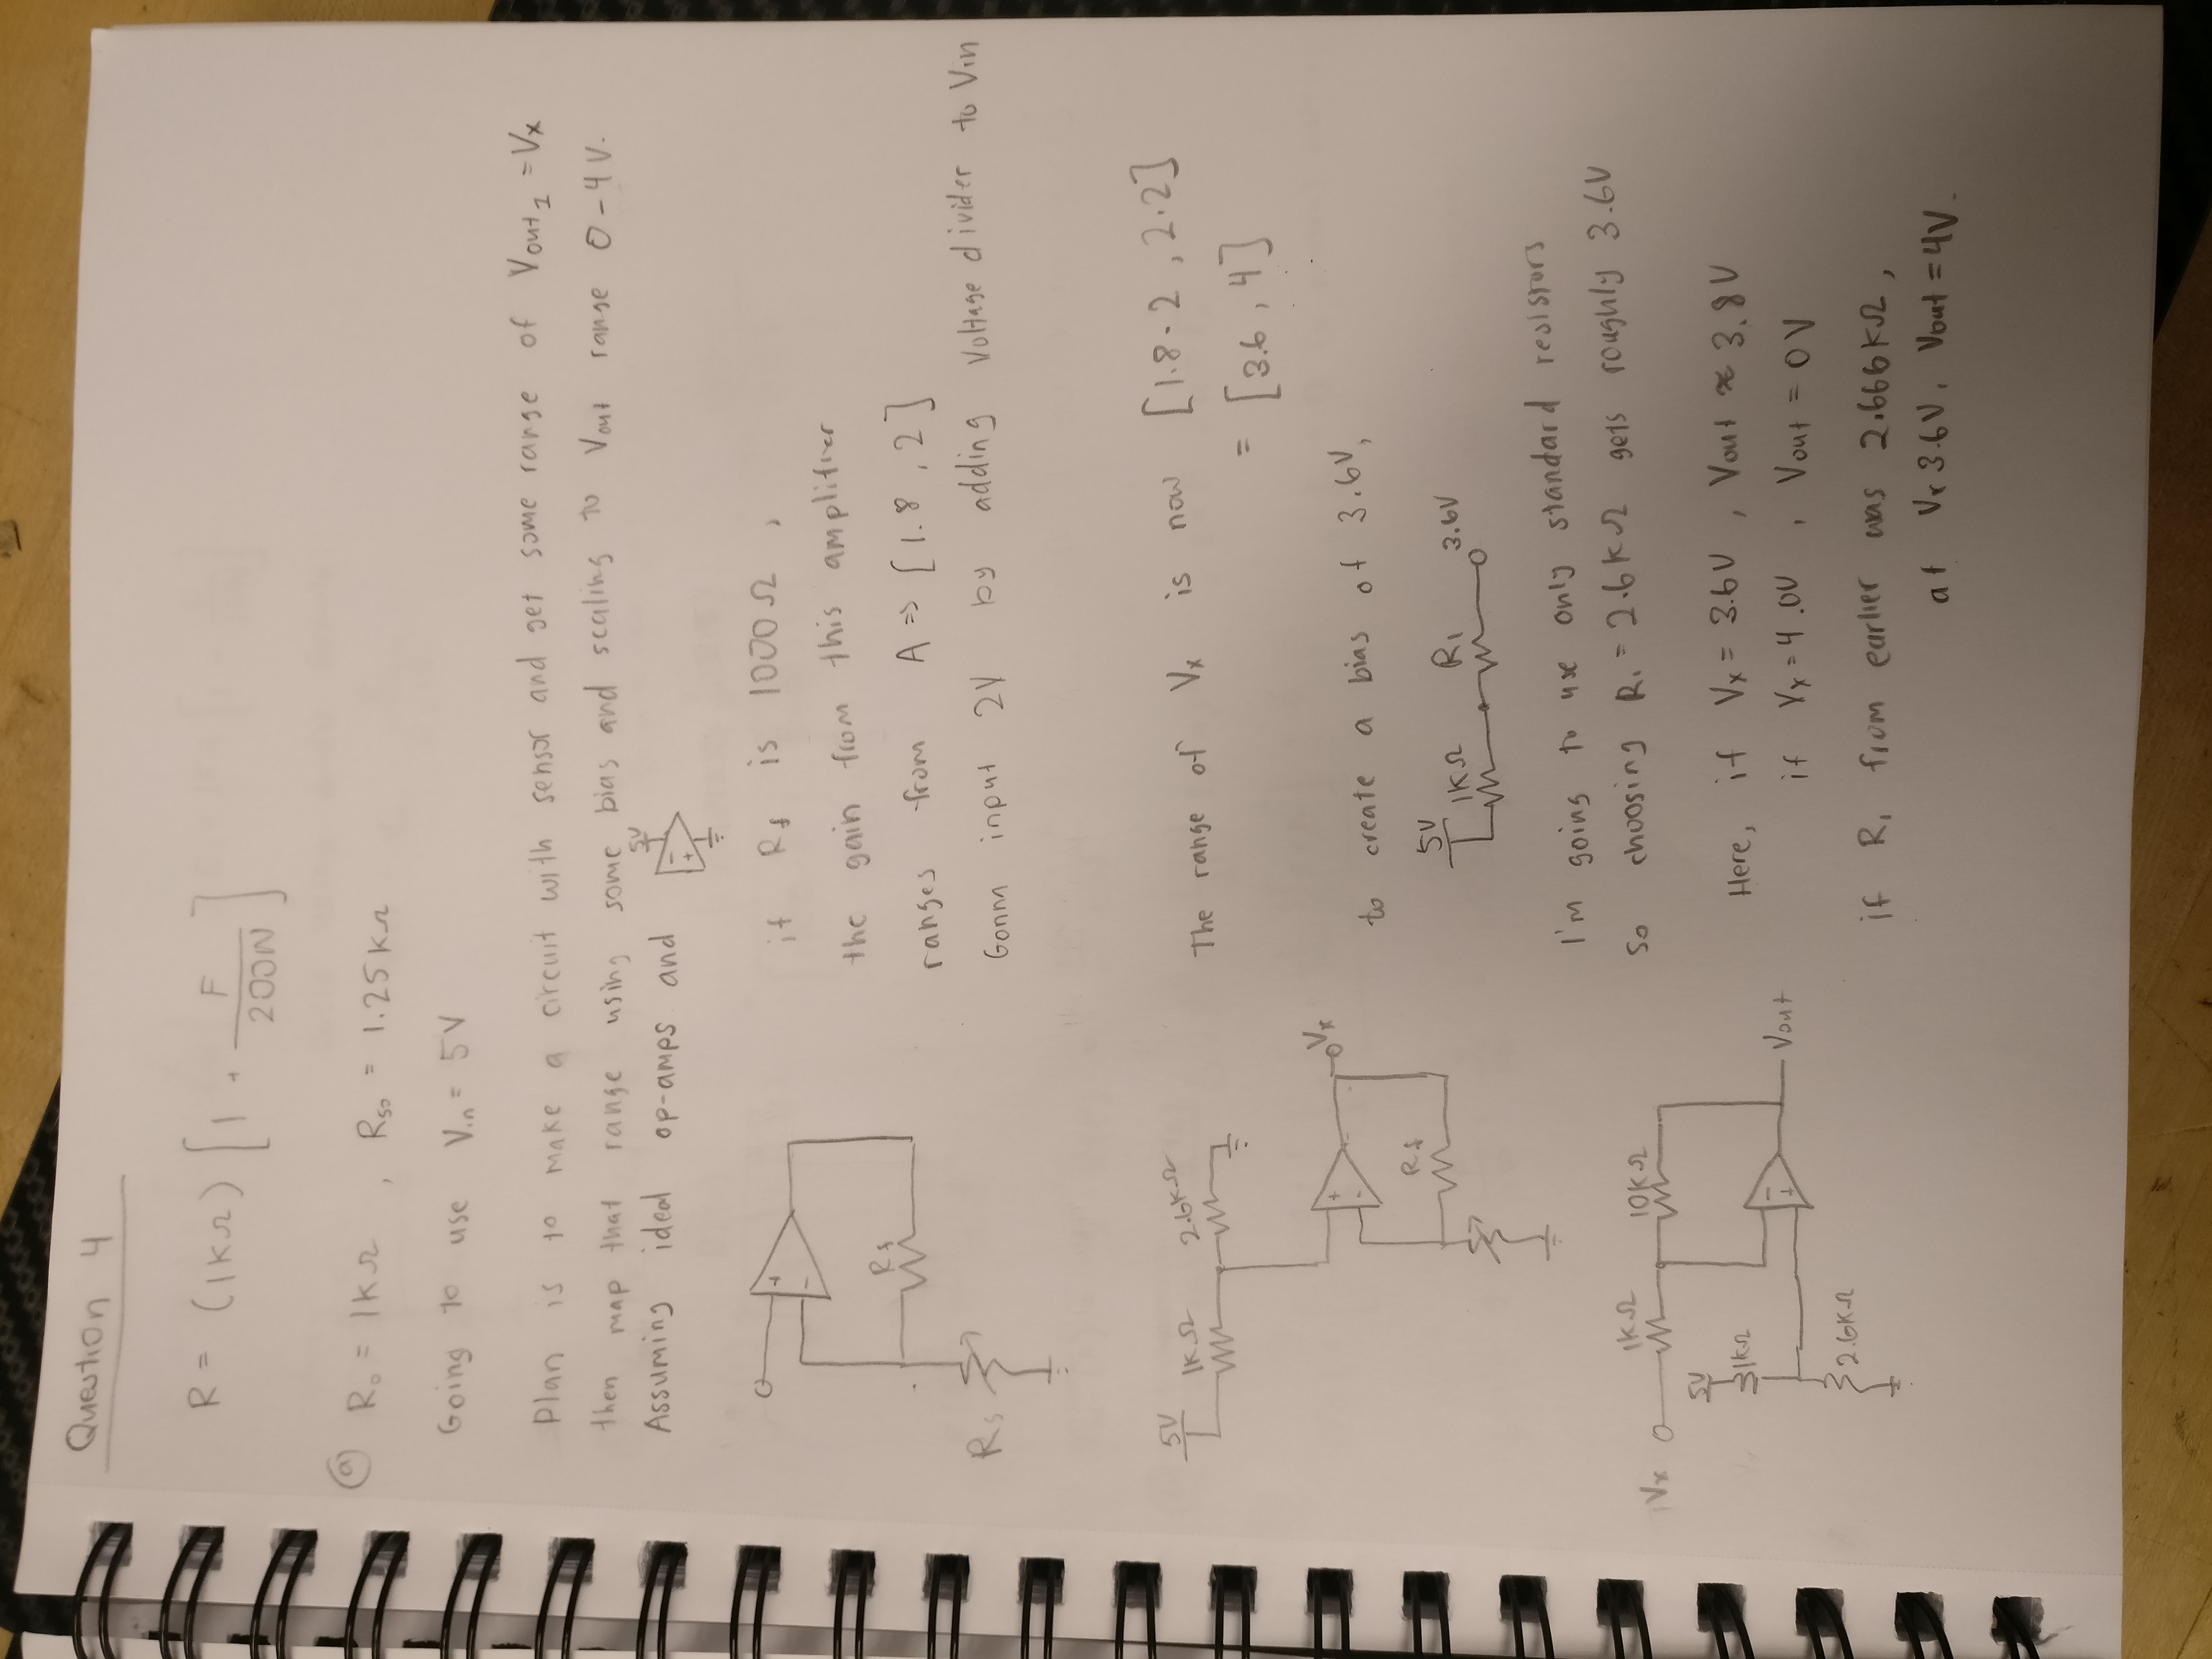 Question 4
R = (1KΩ) [1 + F/200N]
(a) R₀ = 1KΩ , R₅₀ = 1.25KΩ
Going to use Vin = 5V
Plan is to make a circuit with sensor and get some range of Vout₁ = Vx
then map that range using some bias and scaling to Vout range 0-4V.
Assuming ideal op-amps and
5V
- +
+ -
Rf
Rs
if Rf is 1000Ω ,
the gain from this amplifier
ranges from A => [1.8 , 2]
Gonna input 2V by adding Voltage divider to Vin
5V 1KΩ 2.6KΩ
+ - Vx
Rf
The range of Vx is now [1.8·2 , 2·2]
= [3.6 , 4]
to create a bias of 3.6V,
5V 1KΩ R₁ 3.6V
I'm going to use only standard resistors
so choosing R₁ = 2.6KΩ gets roughly 3.6V
Vx 1KΩ 10KΩ
5V
1KΩ
- + Vout
2.6KΩ
Here, if Vx = 3.6V , Vout ≈ 3.8V
if Vx = 4.0V , Vout = 0V
if R₁ from earlier was 2.666KΩ,
at Vx 3.6V, Vout = 4V.